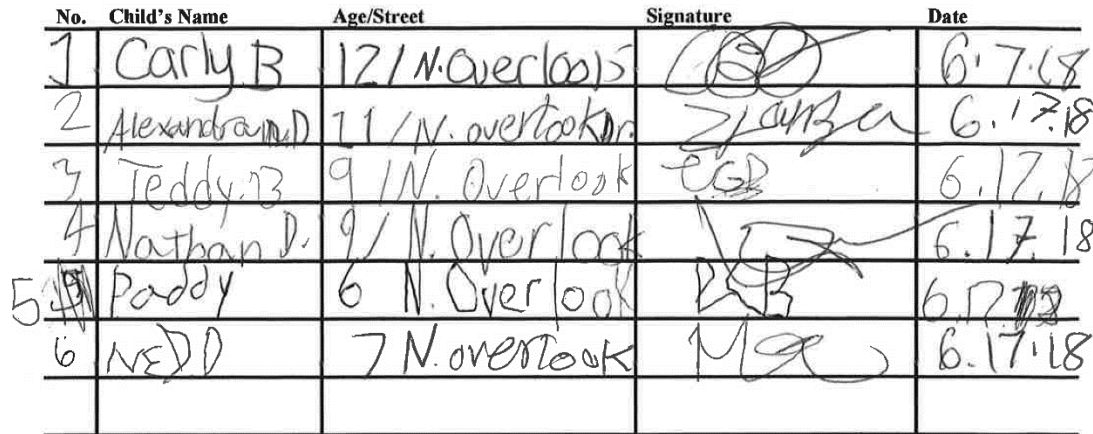 No. Child's Name Age/Street Signature Date
1 Carly B 12 / N. Overlook 6.17.18
2 Alexandra m.D 11 / N. overlook Dr. 6.17.18
3 Teddy.B 9 / N. Overlook TGB 6.17.18
4 Nathan D. 9 / N. Overlook 6.17.18
5 Paddy 6 N. Overlook 6.17.18
6 NED D 7 N. overlook 6.17.18